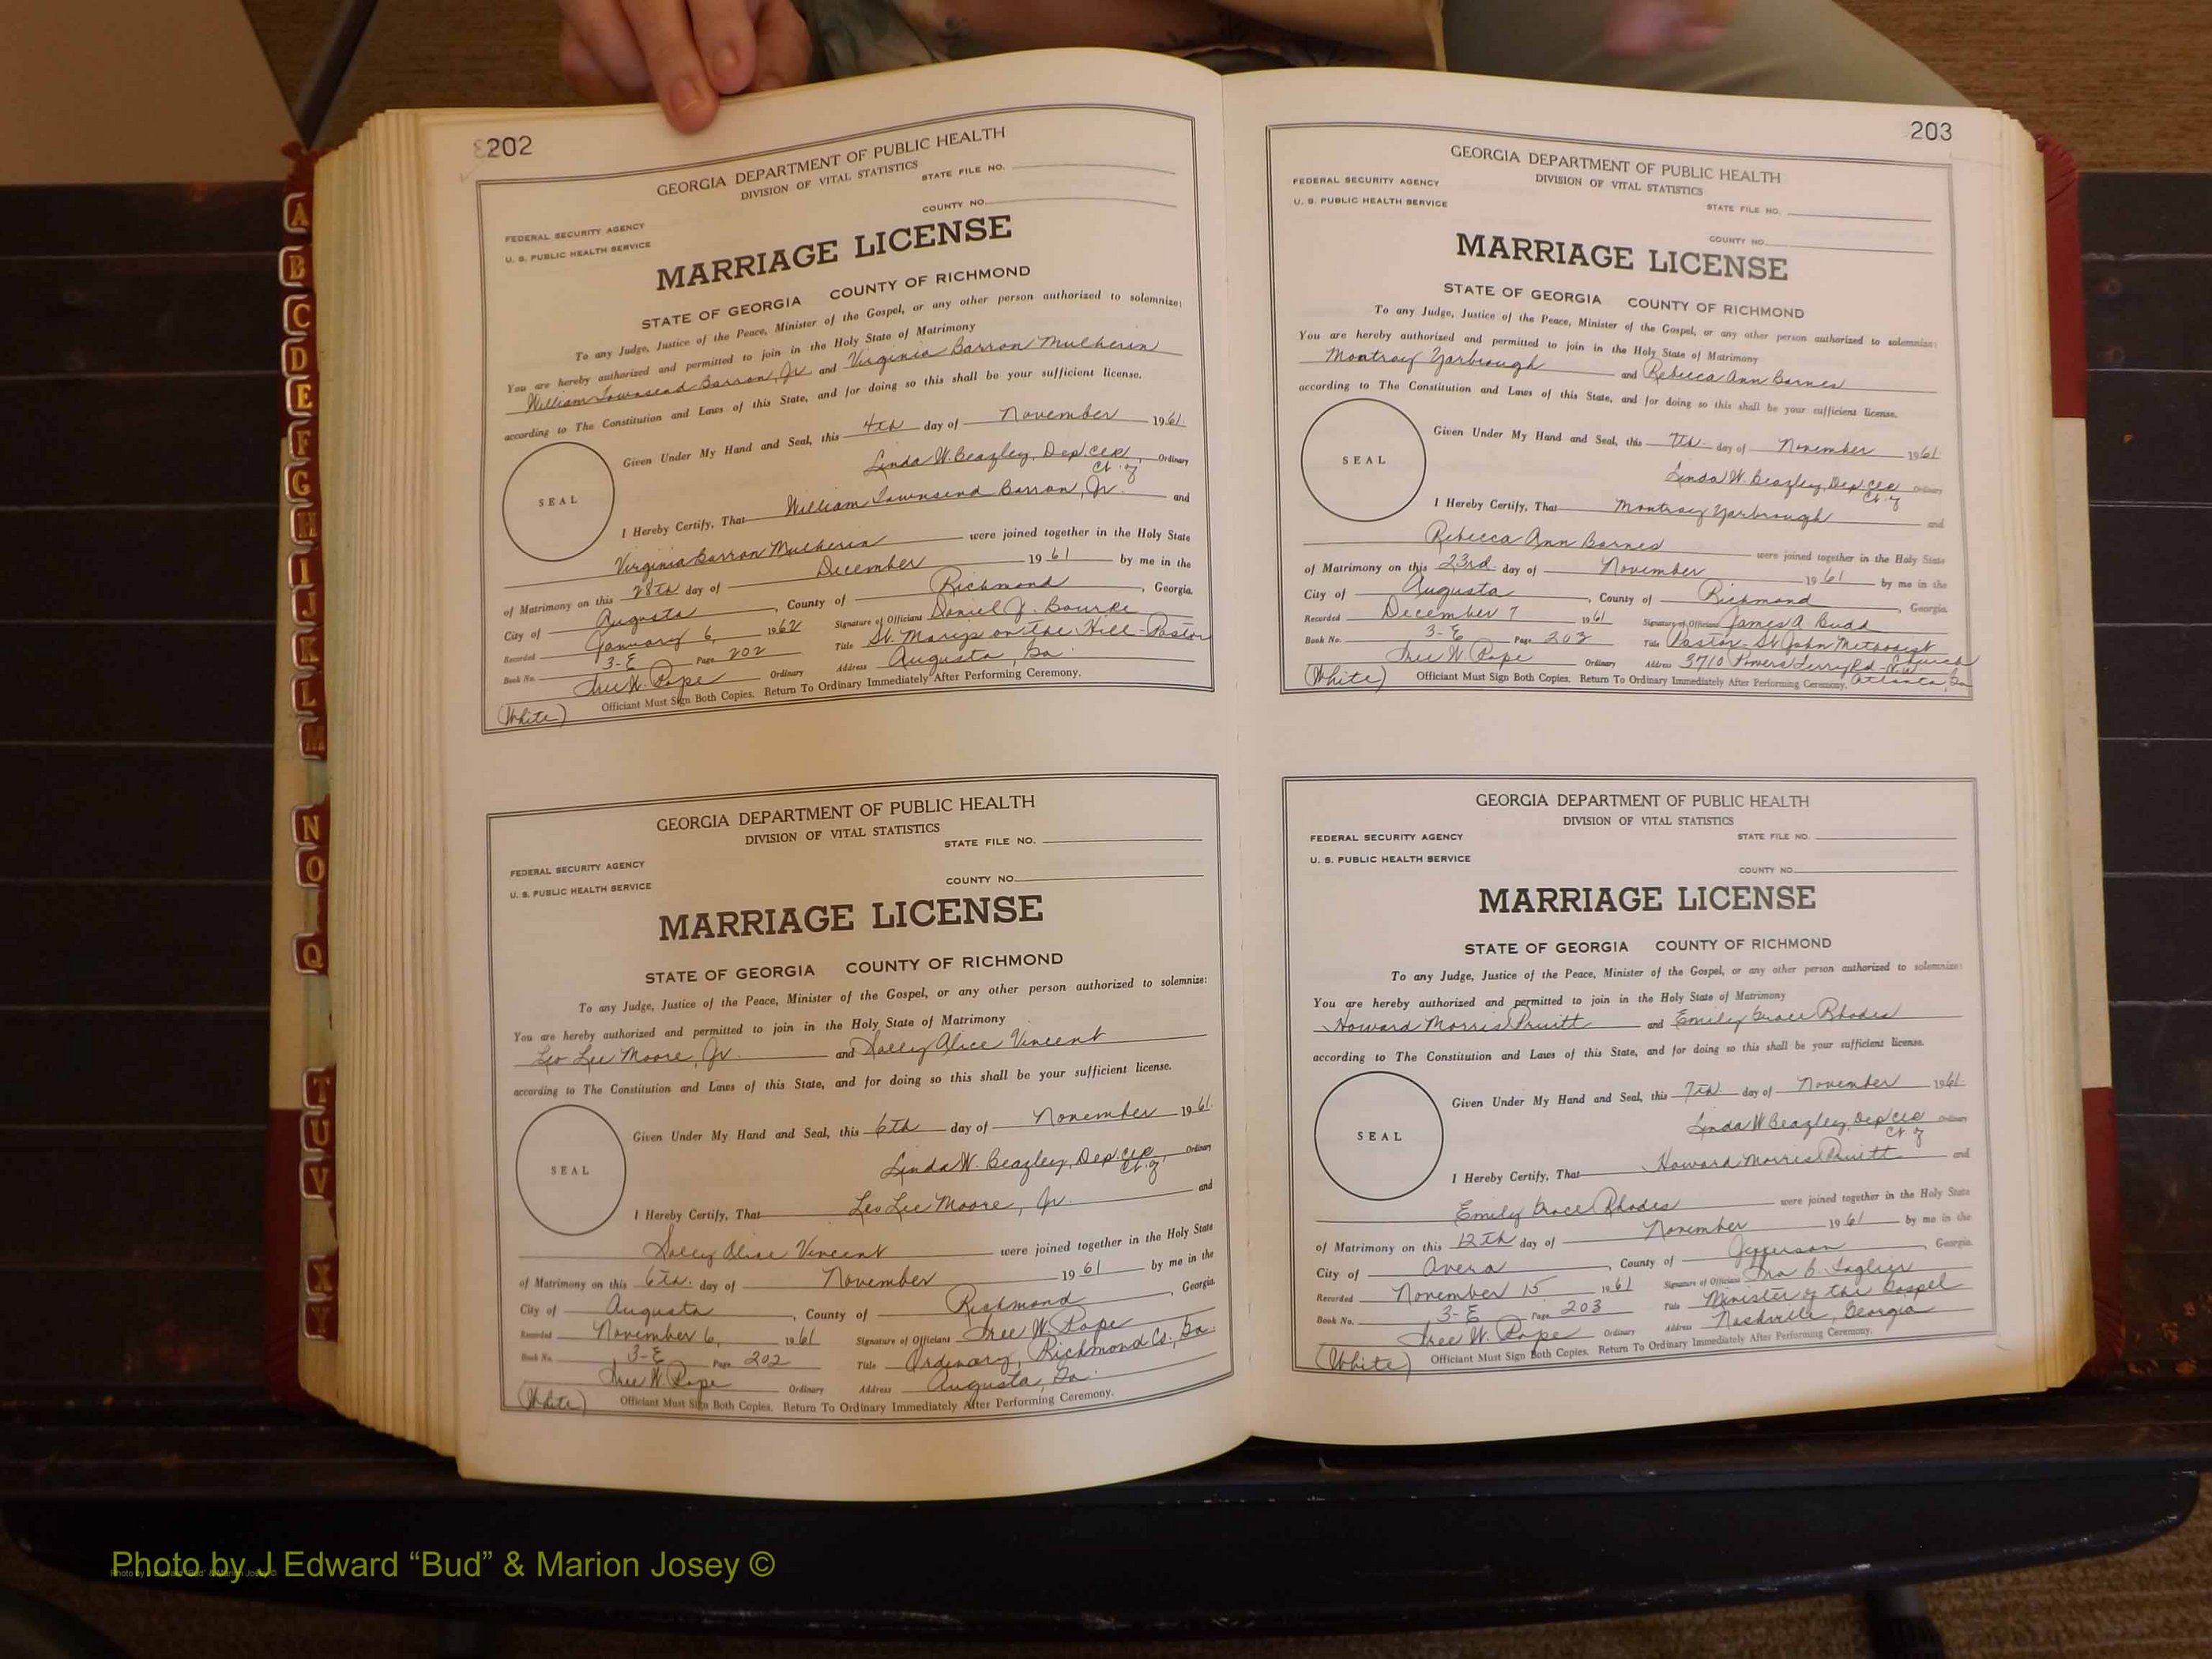 202
GEORGIA DEPARTMENT OF PUBLIC HEALTH
DIVISION OF VITAL STATISTICS
STATE FILE NO.
COUNTY NO.
FEDERAL SECURITY AGENCY
U. S. PUBLIC HEALTH SERVICE
MARRIAGE LICENSE
STATE OF GEORGIA COUNTY OF RICHMOND
To any Judge, Justice of the Peace, Minister of the Gospel, or any other person authorized to solemnize:
You are hereby authorized and permitted to join in the Holy State of Matrimony
William Townsend Barron, Jr. and Virginia Barron Mulherin
according to The Constitution and Laws of this State, and for doing so this shall be your sufficient license.
Given Under My Hand and Seal, this 4th day of November 1961.
SEAL
Linda W. Beazley, Dep. Clk., Ordinary
Ct. of
I Hereby Certify, That William Townsend Barron, Jr. and
Virginia Barron Mulherin were joined together in the Holy State
of Matrimony on this 28th day of December 1961 by me in the
City of Augusta, County of Richmond, Georgia.
Recorded January 6, 1962 Signature of Officiant Daniel J. Bourke
Book No. 3-E Page 202 Title St. Marys on the Hill - Pastor
Ordinary Address Augusta, Ga.
Officiant Must Sign Both Copies. Return To Ordinary Immediately After Performing Ceremony.
(White)
GEORGIA DEPARTMENT OF PUBLIC HEALTH
DIVISION OF VITAL STATISTICS
STATE FILE NO.
FEDERAL SECURITY AGENCY
COUNTY NO.
U. S. PUBLIC HEALTH SERVICE
MARRIAGE LICENSE
STATE OF GEORGIA COUNTY OF RICHMOND
To any Judge, Justice of the Peace, Minister of the Gospel, or any other person authorized to solemnize:
You are hereby authorized and permitted to join in the Holy State of Matrimony
Leo Lee Moore, Jr. and Sally Alice Vincent
according to The Constitution and Laws of this State, and for doing so this shall be your sufficient license.
Given Under My Hand and Seal, this 6th day of November 1961.
SEAL
Linda W. Beazley, Dep. Clk., Ordinary
Ct. of
I Hereby Certify, That Leo Lee Moore, Jr. and
Sally Alice Vincent were joined together in the Holy State
of Matrimony on this 6th. day of November 1961 by me in the
City of Augusta, County of Richmond, Georgia.
Recorded November 6, 1961 Signature of Officiant W. Pope
Book No. 3-E Page 202 Title Ordinary, Richmond Co., Ga.
W. Pope Ordinary Address Augusta, Ga.
(White) Officiant Must Sign Both Copies. Return To Ordinary Immediately After Performing Ceremony.
203
GEORGIA DEPARTMENT OF PUBLIC HEALTH
DIVISION OF VITAL STATISTICS
FEDERAL SECURITY AGENCY
U. S. PUBLIC HEALTH SERVICE
STATE FILE NO.
COUNTY NO.
MARRIAGE LICENSE
STATE OF GEORGIA COUNTY OF RICHMOND
To any Judge, Justice of the Peace, Minister of the Gospel, or any other person authorized to solemnize:
You are hereby authorized and permitted to join in the Holy State of Matrimony
Montroy Yarbrough and Rebecca Ann Barnes
according to The Constitution and Laws of this State, and for doing so this shall be your sufficient license.
Given Under My Hand and Seal, this 7th day of November 1961
SEAL
Linda W. Beazley, Dep. Clk Ordinary
Ct. of
I Hereby Certify, That Montroy Yarbrough and
Rebecca Ann Barnes were joined together in the Holy State
of Matrimony on this 23rd. day of November 1961 by me in the
City of Augusta, County of Richmond, Georgia.
Recorded December 7 1961 Signature of Officiant James A. Budd
Book No. 3-E Page 203 Title Pastor - St John Methodist
W. Pope Ordinary Address 3710 Powers Ferry Rd - N.W. Church
(White) Officiant Must Sign Both Copies. Return To Ordinary Immediately After Performing Ceremony. Atlanta, Ga
GEORGIA DEPARTMENT OF PUBLIC HEALTH
DIVISION OF VITAL STATISTICS
FEDERAL SECURITY AGENCY STATE FILE NO.
U. S. PUBLIC HEALTH SERVICE
COUNTY NO.
MARRIAGE LICENSE
STATE OF GEORGIA COUNTY OF RICHMOND
To any Judge, Justice of the Peace, Minister of the Gospel, or any other person authorized to solemnize:
You are hereby authorized and permitted to join in the Holy State of Matrimony
Howard Morris Pruitt and Emily Grace Rhodes
according to The Constitution and Laws of this State, and for doing so this shall be your sufficient license.
Given Under My Hand and Seal, this 7th day of November 1961
SEAL
Linda W Beazley, Dep Clk Ordinary
Ct. of
I Hereby Certify, That Howard Morris Pruitt and
Emily Grace Rhodes were joined together in the Holy State
of Matrimony on this 12th day of November 1961 by me in the
City of Avera, County of Jefferson, Georgia.
Recorded November 15 1961 Signature of Officiant
Book No. 3-E Page 203 Title Minister of the Gospel
W. Pope Ordinary Address Nashville, Georgia
(White) Officiant Must Sign Both Copies. Return To Ordinary Immediately After Performing Ceremony.
A
B
C
D
E
F
G
H
I
J
K
L
M
N
O
Q
T
U
V
X
Y
Photo by J Edward “Bud” & Marion Josey ©
Photo by J Edward "Bud" & Marion Josey ©